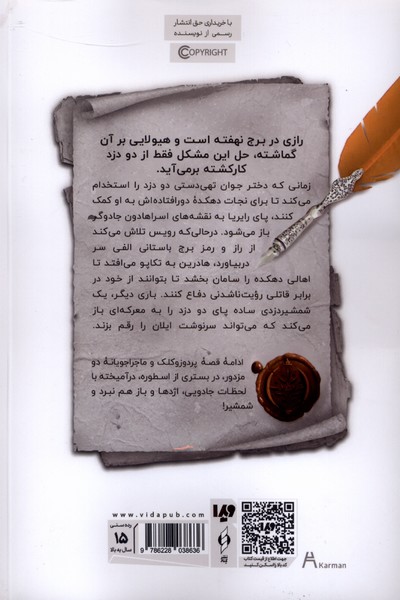 با خریداری حق انتشار
رسمی از نویسنده
COPYRIGHT
رازی در برج نهفته است و هیولایی بر آن
گماشته، حل این مشکل فقط از دو دزد
کارکشته برمی‌آید.
زمانی که دختر جوان تهی‌دستی دو دزد را استخدام
می‌کند تا برای نجات دهکدهٔ دورافتاده‌اش به او کمک
کنند، پای رایریا به نقشه‌های اسراهادون جادوگر
باز می‌شود. درحالی‌که رویس تلاش می‌کند
از راز و رمز برج باستانی الفی سر
دربیاورد، هادرین به تکاپو می‌افتد تا
اهالی دهکده را سامان بخشد تا بتوانند از خود در
برابر قاتلی رؤیت‌ناشدنی دفاع کنند. باری دیگر، یک
شمشیردزدی ساده پای دو دزد را به معرکه‌ای باز
می‌کند که می‌تواند سرنوشت ایلان را رقم بزند.
ادامهٔ قصهٔ پردوزوکلک و ماجراجویانهٔ دو
مزدور، در بستری از اسطوره، درآمیخته با
لحظات جادویی، اژدها و باز هم نبرد و
شمشیر!
www.vidapub.com
رده سنی
۱۵
سال به بالا
9 786228 038636
ویدا
جهت اطلاع از قیمت کتاب
کد بالا را اسکن کنید
Karman